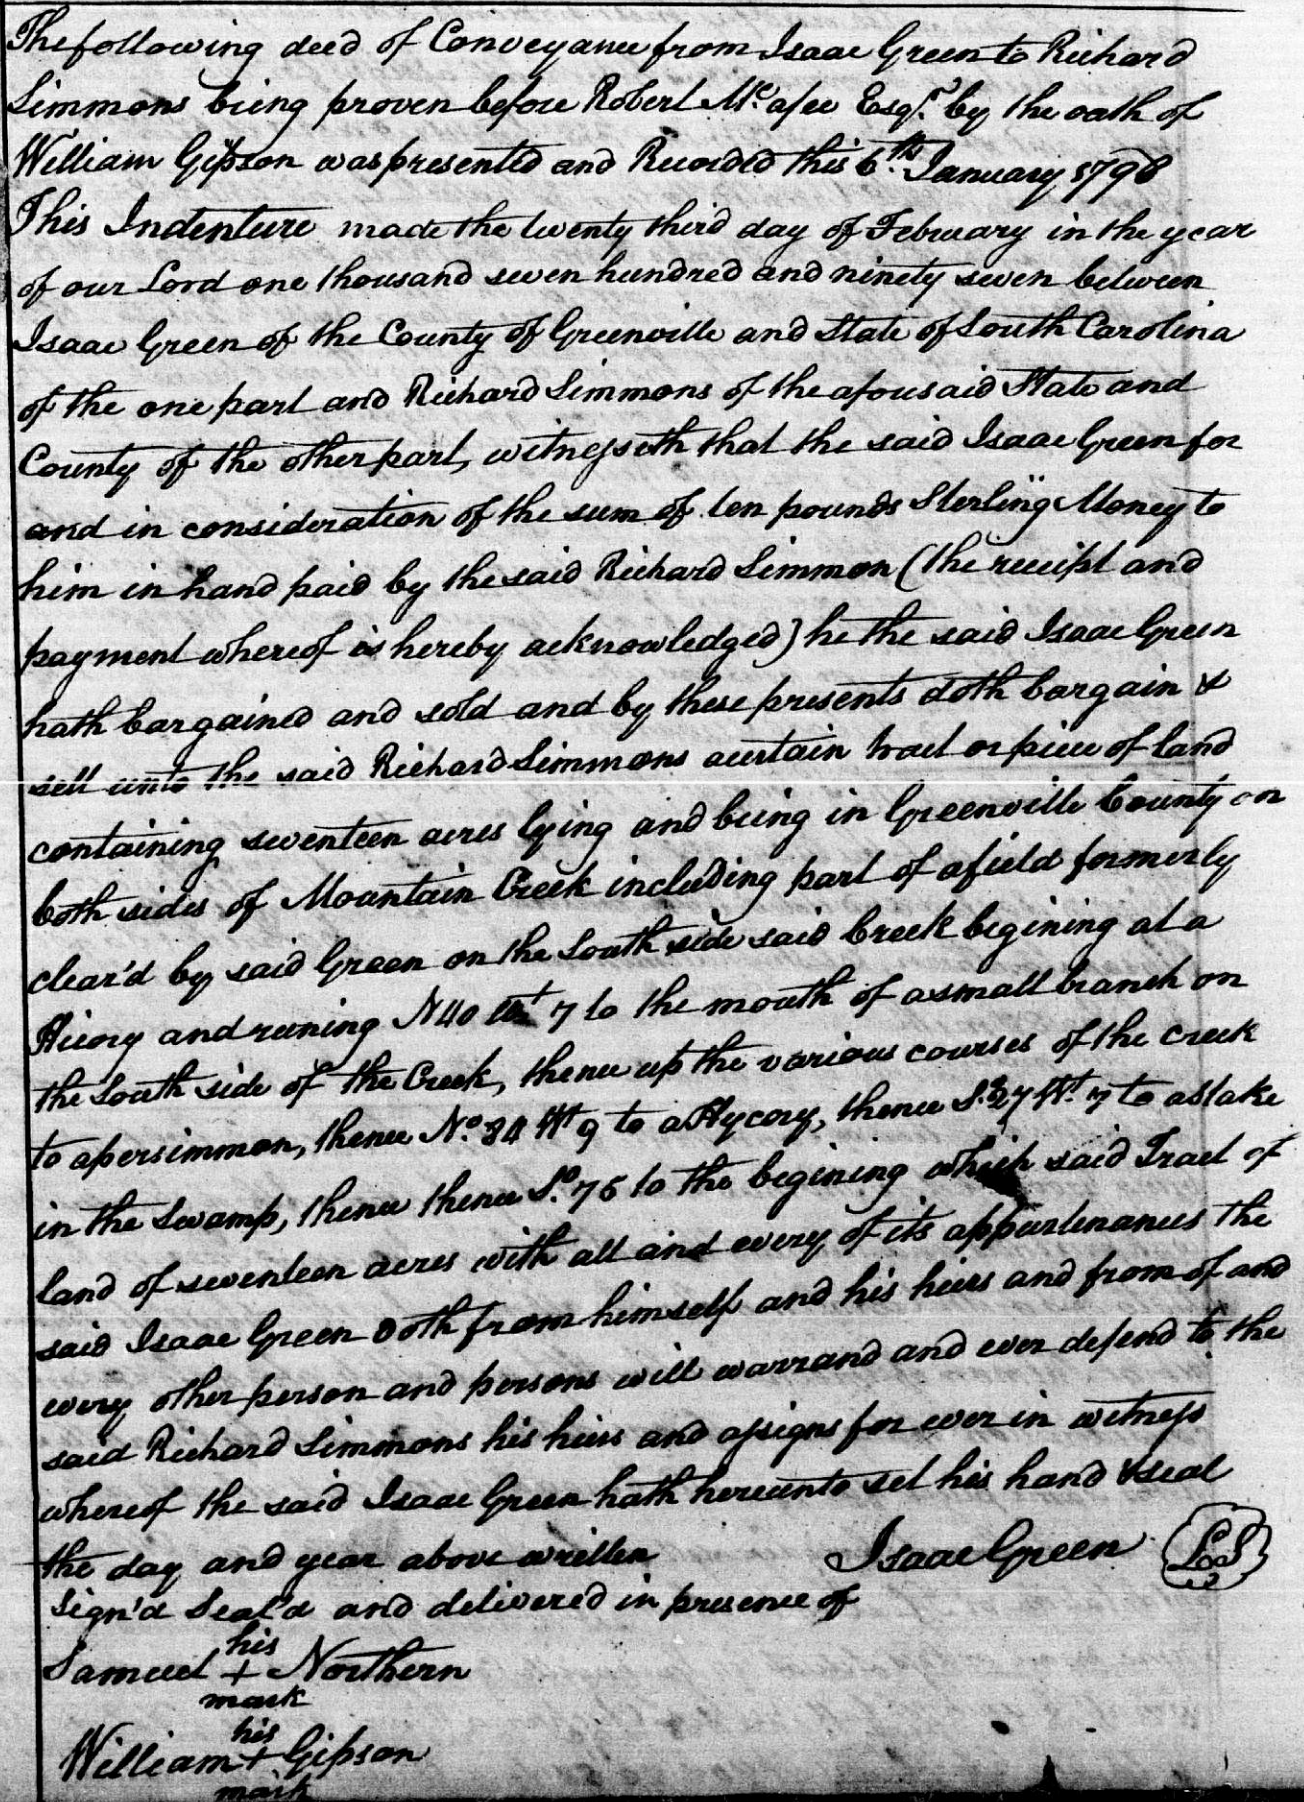 The following deed of Conveyance from Isaac Green to Richard
Simmons being proven before Robert McAfee Esqr. by the oath of
William Gipson was presented and Recorded this 6th. January 1798
This Indenture made the twenty third day of February in the year
of our Lord one thousand seven hundred and ninety seven between
Isaac Green of the County of Greenville and State of South Carolina
of the one part and Richard Simmons of the aforesaid State and
County of the other part, witnesseth that the said Isaac Green for
and in consideration of the sum of ten pounds Sterling Money to
him in hand paid by the said Richard Simmon (the receipt and
payment whereof is hereby acknowledged) he the said Isaac Green
hath bargained and sold and by these presents doth bargain &
sell unto the said Richard Simmons a certain tract or piece of land
containing seventeen acres lying and being in Greenville County on
both sides of Mountain Creek including part of a field formerly
clear'd by said Green on the South side said Creek begining at a
Hicory and runing N 40 Wt 7 to the mouth of a small branch on
the South side of the Creek, thence up the various courses of the creek
to a persimmon, thence No. 34 Wt 9 to a Hycory, thence S. 27 Wt. 7 to a stake
in the Swamp, thence thence So. 75 to the begining which said Tract of
land of seventeen acres with all and every of its appurtenances the
said Isaac Green doth from himself and his heirs and from of and
every other person and persons will warrand and ever defend to the
said Richard Simmons his heirs and assigns for ever in witness
whereof the said Isaac Green hath hereunto set his hand & seal
the day and year above written Isaac Green LS
Sign'd Seal'd and delivered in presence of
his
Samuel + Northern
mark
his
William + Gipson
mark